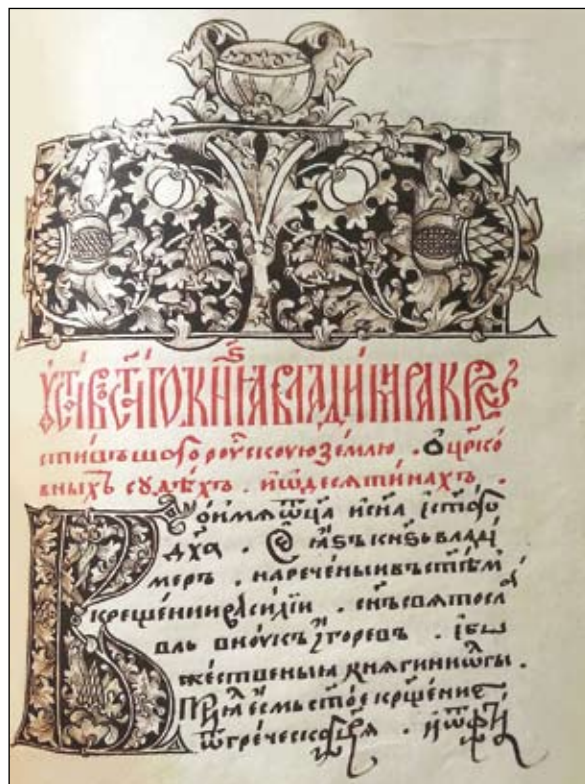 Уставъ ст҃го кн҃ѕѧ владимира кре
стившого роускоую землю . Ѻ церко
вныхъ судѣхъ . и ѡ десятинахъ .
Во имѧ ѿца и сн҃а и ст҃огѡ
дх҃а . Се азъ кнѕь влади
меръ . нареченыи въ ст҃ѣмъ
крещении василїи . сн҃ъ святосла
вль внукъ игоревъ . і бла
жественыꙗ княгини ѡлгы .
Приꙗлъ есмь ст҃ое кр҃щение
ѿ греческого ц҃ря . и ѿ